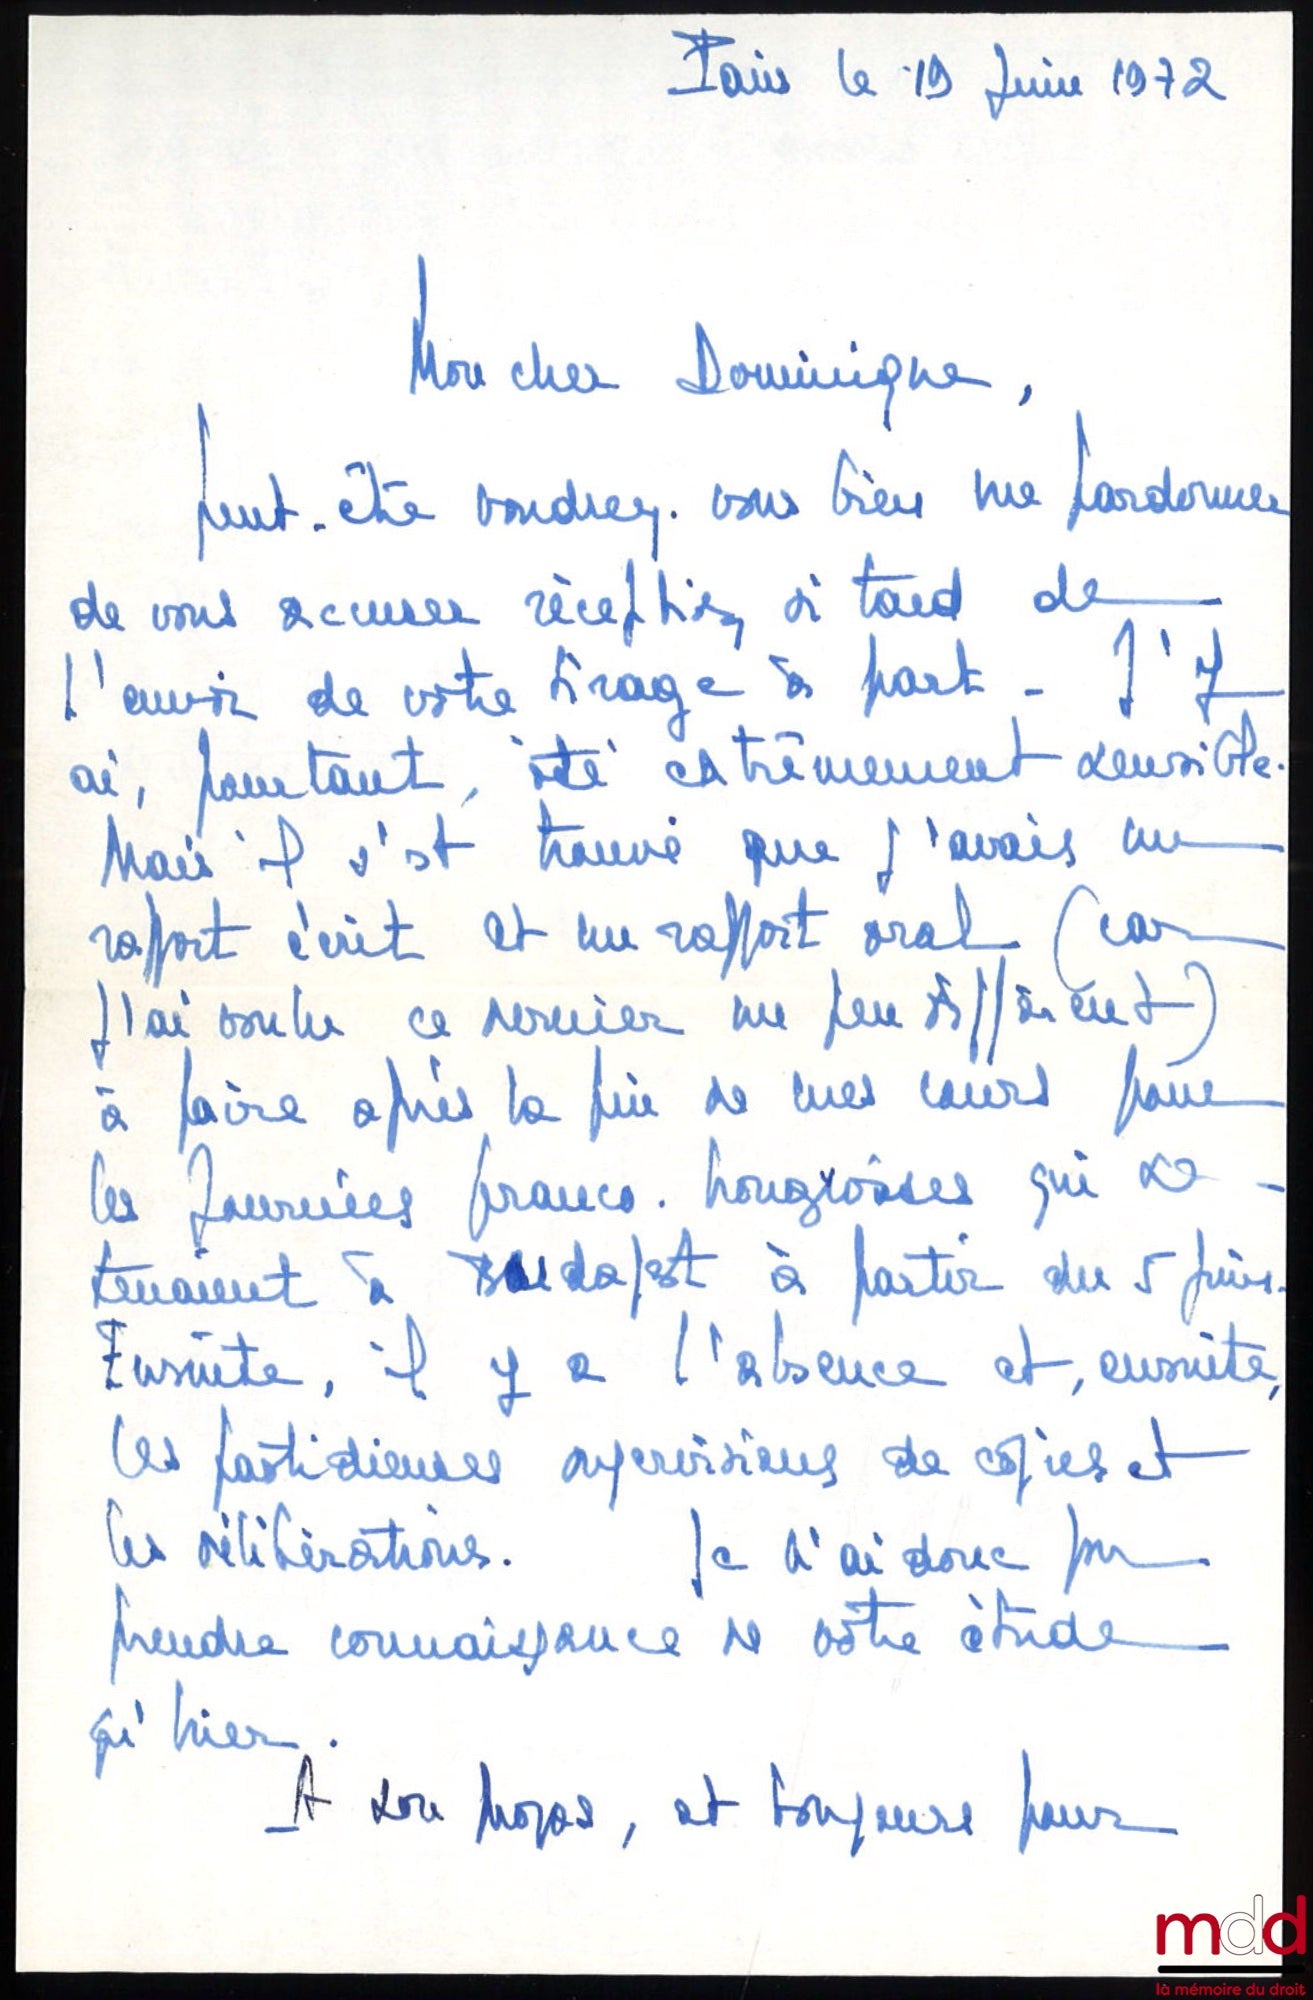 Paris le 19 Juin 1972
Mon cher Dominique,
Peut-être voudrez-vous bien me pardonner
de vous accuser réception si tard de
l'envoi de votre tirage à part - J'y
ai, pourtant, été extrêmement sensible.
Mais il s'est trouvé que j'avais un
rapport écrit et un rapport oral (car
j'ai voulu ce dernier un peu différent)
à faire après la fin de mes cours pour
les Journées franco-hongroises qui se -
tenaient à Budapest à partir du 5 juin.
Ensuite, il y a l'absence et, ensuite,
les fastidieuses supervisions de copies et
les délibérations. Je n'ai donc pu
prendre connaissance de votre étude
qu'hier.
A son propos, et toujours pour
mdd
la mémoire du droit